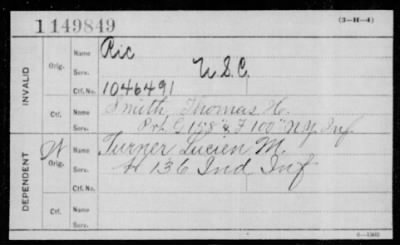 1149849
(3—H—4)
INVALID
Orig.
Name Ric
Serv. U.S.C.
Ctf. No. 1046491
Ctf.
Name Smith, Thomas H.
Serv. 158 & F 100" N.Y. Inf
DEPENDENT
W
Orig.
Name Turner Lucien M.
Serv. 136 Ind Inf
Ctf. No.
Ctf.
Name
Serv.